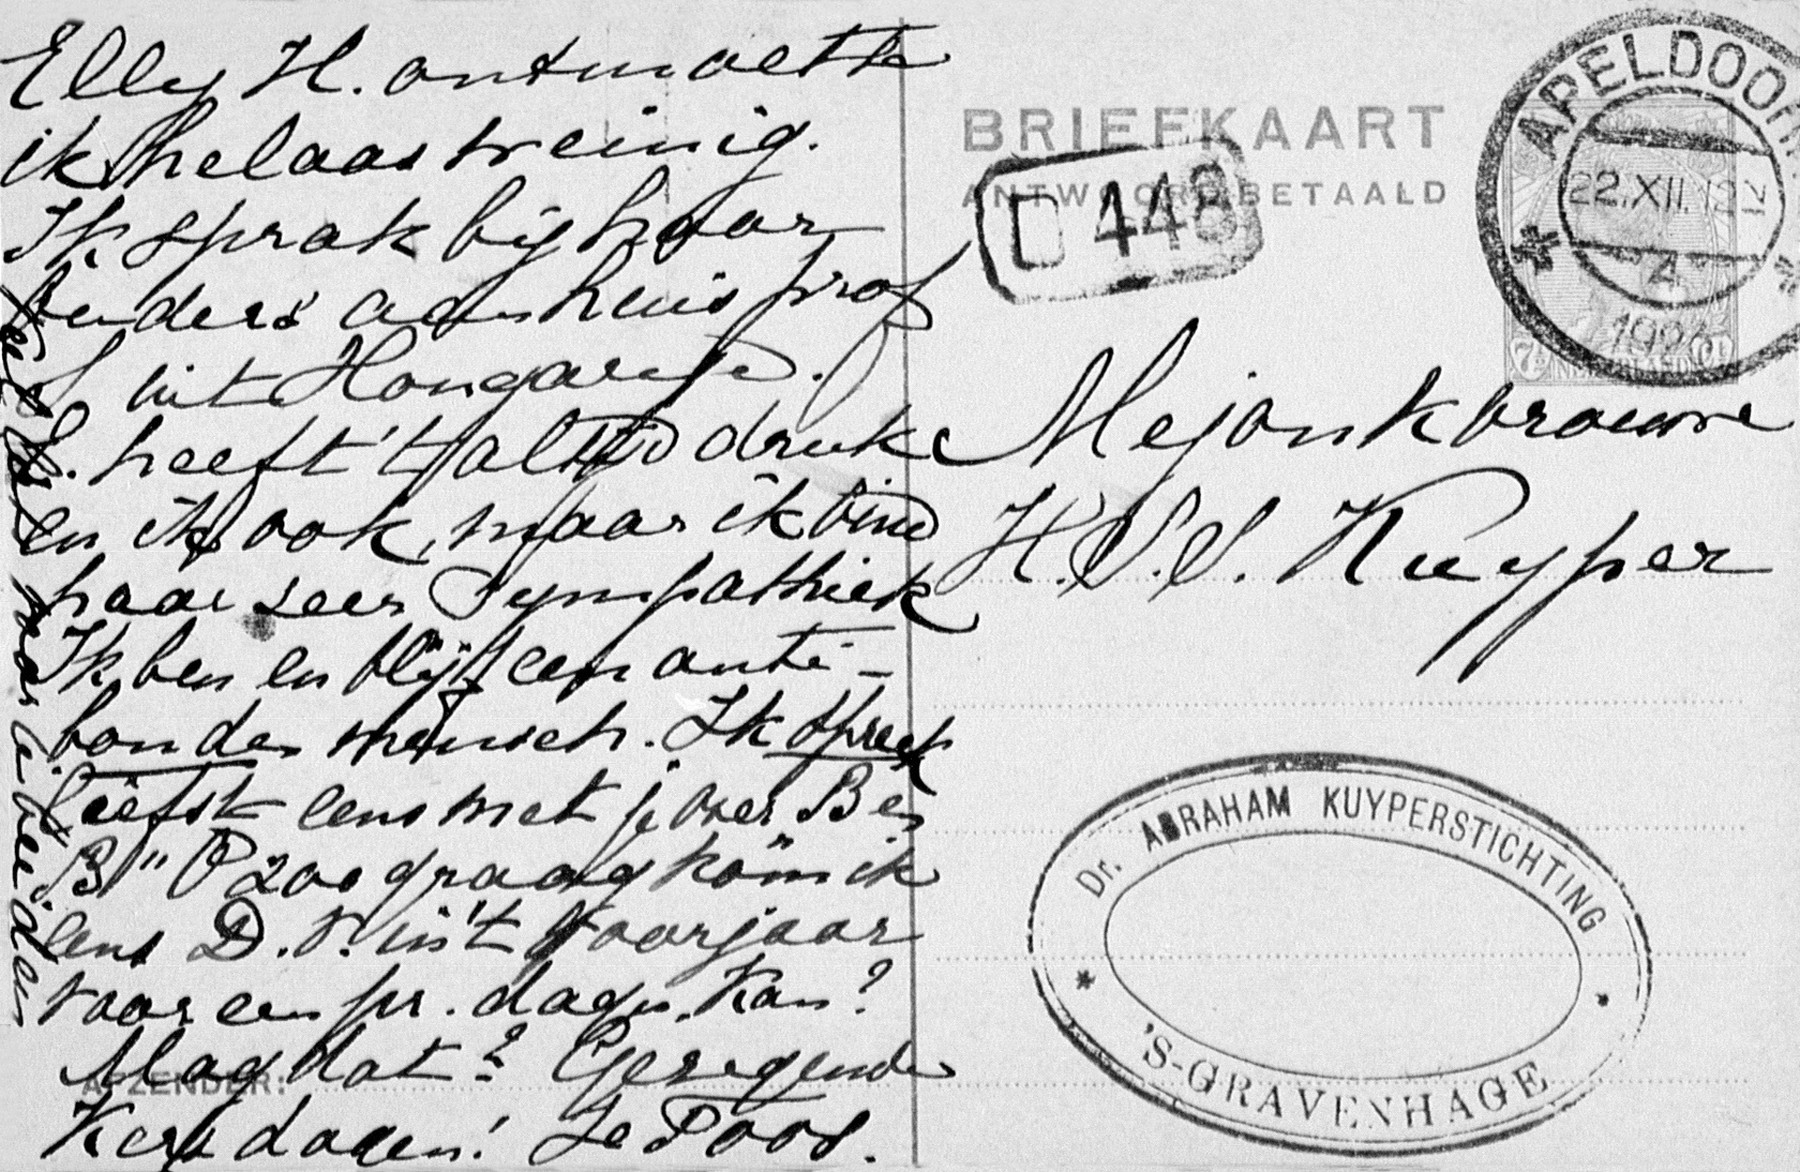 Elly H. ontmoette
ik helaas weinig.
Ik sprak bij haar
ouders aan huis prof
S uit Hongarije.
E. heeft 't altijd druk
en ik ook, maar ik vind
haar zeer sympathiek
Ik ben en blijf een anti-
bonder mensch. Ik spreek
liefst eens met je over B en
B" O zoo graag kom ik
eens D.V. in 't voorjaar
voor een pr. dagen. Kan?
Mag dat? Gezegende
Kerstdagen! Je Toos.
naar je beiden
BRIEFKAART
ANTWOORD BETAALD
D 448
APELDOORN
22.XII.12
4
192
7½ NEDERLAND ct
Mejonkvrouwe
H.S.S. Kuyper
Dr. ABRAHAM KUYPERSTICHTING
'S-GRAVENHAGE
AFZENDER: